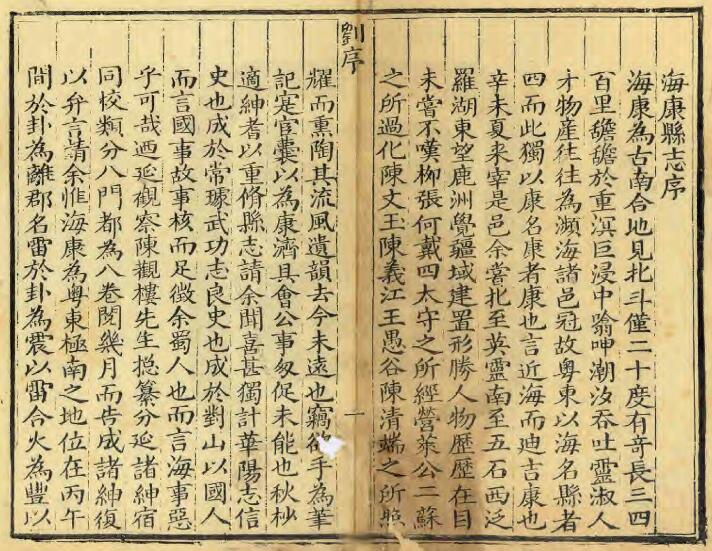 海康縣志序
海康為古南合地見北斗僅二十度有奇長三四
百里於重溟巨浸中翕呷潮汐吞吐靈淑人
才物産往往為瀕海諸邑冠故粤東以海名縣者
四而此獨以康名康者康也言近海而迪吉康也
辛未夏来宰是邑余嘗北至英靈南至五石西泛
羅湖東望鹿洲覺疆域建置形勝人物歷歷在目
未嘗不嘆柳張何戴四太守之所經營萊公二蘇
之所過化陳文玉陳義江王愚谷陳清端之所照
劉序
一
耀而熏陶其流風遺韻去今未遠也竊欲手為筆
記寔官囊以為康濟具會公事匆促未能也秋杪
適紳耆以重脩縣志請余聞喜甚獨計華陽志信
史也成於常璩武功志良史也成於對山以國人
而言國事故事核而足徵余蜀人也而言海事惡
乎可哉迺延觀察陳觀樓先生揔纂分延諸紳宿
同校類分八門都為八卷閱幾月而告成諸紳復
以弁言請余惟海康為粤東極南之地位在丙午
間於卦為離郡名雷於卦為震以雷合火為豐以